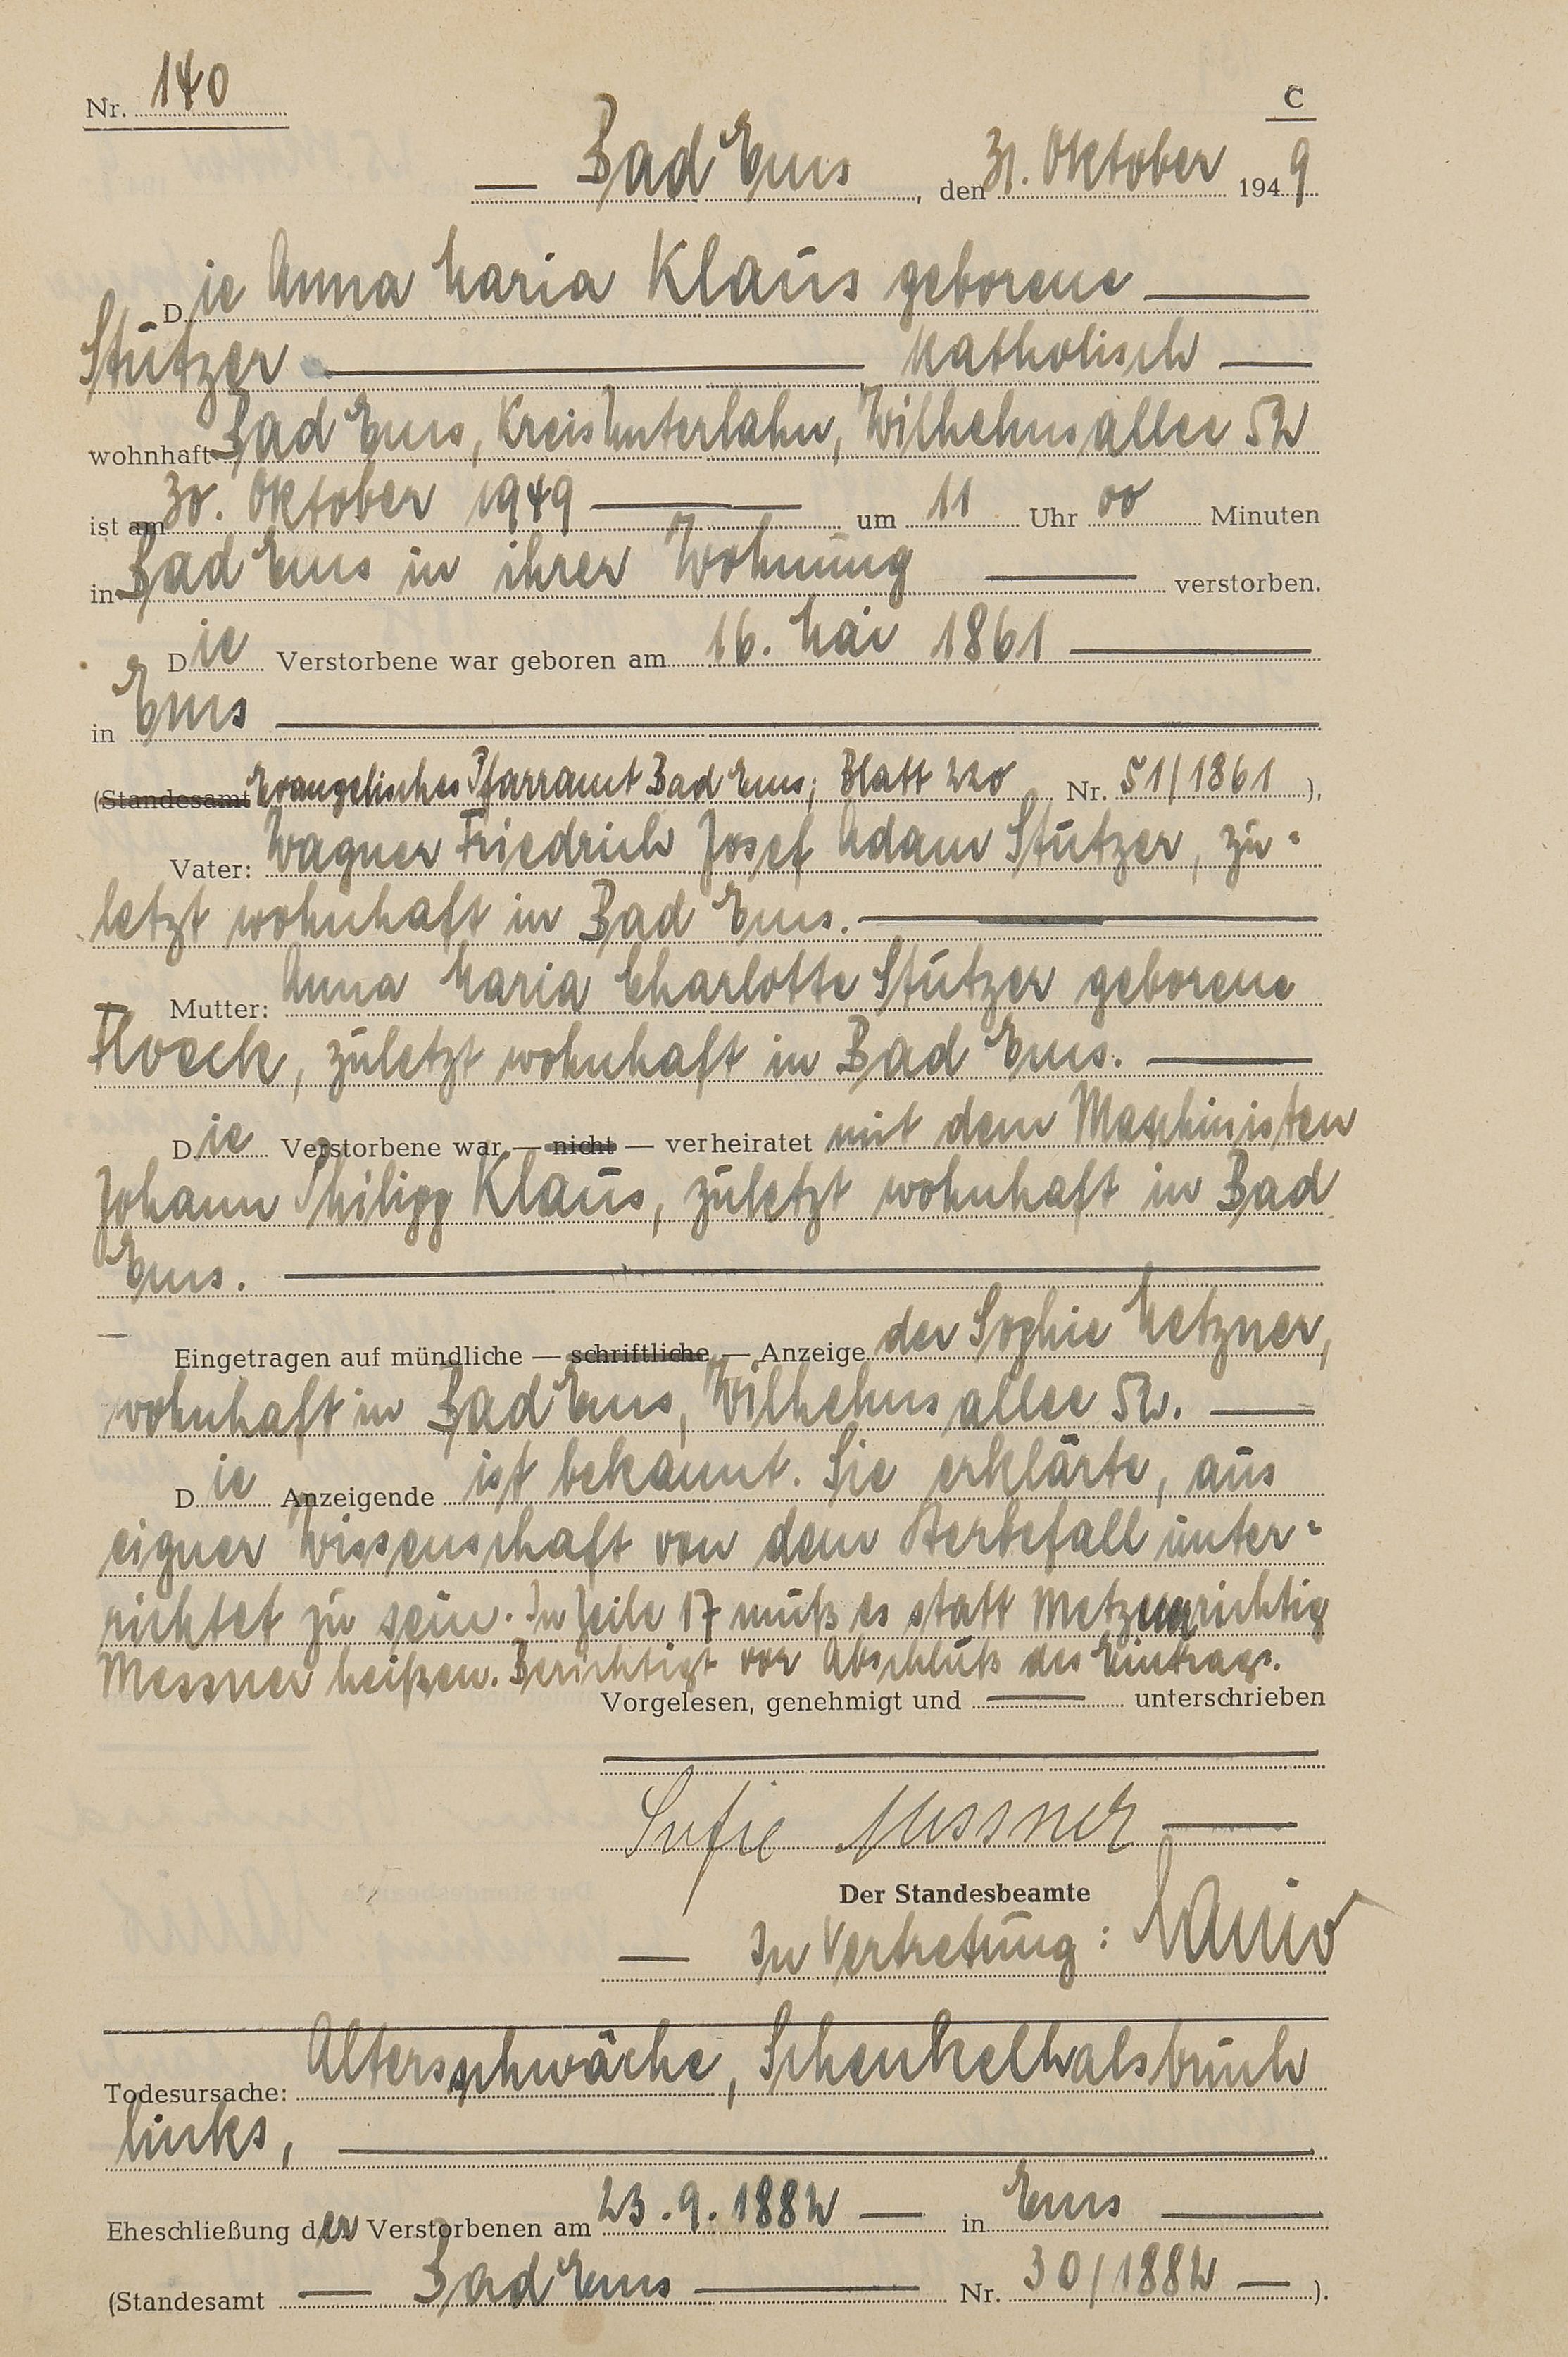 Nr. 140
C
— Bad Ems, den 31. Oktober 1949
Die Anna Maria Klaus geborene —
Stützer — katholisch —
wohnhaft Bad Ems, Kreis Unterlahn, Wilhelmsallee 52
ist am 30. Oktober 1949 — um 11 Uhr 00 Minuten
in Bad Ems in ihrer Wohnung — verstorben.
Die Verstorbene war geboren am 16. Mai 1861 —
in Ems —
(Standesamt Evangelisches Pfarramt Bad Ems; Blatt 220 Nr. 51/1861),
Vater: Wagner Friedrich Josef Adam Stützer, zu-
letzt wohnhaft in Bad Ems. —
Mutter: Anna Maria Charlotte Stützer geborene
Floeck, zuletzt wohnhaft in Bad Ems. —
Die Verstorbene war — nicht — verheiratet mit dem Maschinisten
Johann Philipp Klaus, zuletzt wohnhaft in Bad
Ems. —
Eingetragen auf mündliche — schriftliche — Anzeige der Sophie Metzner,
wohnhaft in Bad Ems, Wilhelmsallee 52. —
Die Anzeigende ist bekannt. Sie erklärte, aus
eigner Wissenschaft von dem Sterbefall unter-
richtet zu sein. In Zeile 17 muß es statt Metzner richtig
Messner heißen. Berichtigt vor Abschluß des Eintrags.
Vorgelesen, genehmigt und — unterschrieben
Sofie Messner —
Der Standesbeamte
— In Vertretung:
Todesursache: Altersschwäche, Schenkelhalsbruch
links, —
Eheschließung der Verstorbenen am 23.9.1882 — in Ems —
(Standesamt — Bad Ems — Nr. 30/1882 —).